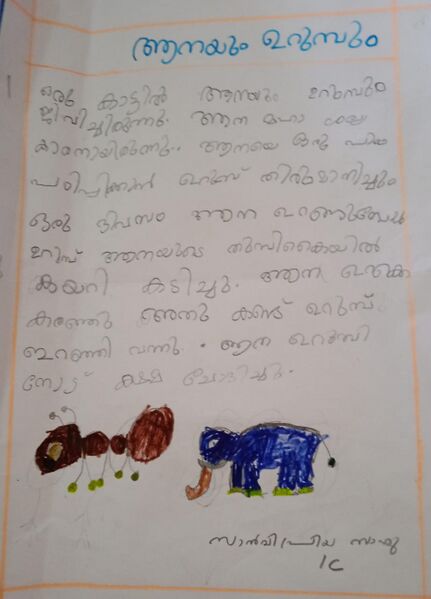 ആനയും ഉറുമ്പും
ഒരു കാട്ടിൽ ആനയും ഉറുമ്പും
ജീവിച്ചിരുന്നു. ആന മഹാ
കാരനായിരുന്നു. ആനയെ ഒരു
പഠിപ്പിക്കാൻ ഉറുമ്പ് തിരുമാനിച്ചും
ഒരു ദിവസം ആന
ഉറുമ്പ് ആനയുടെ തുമ്പികൈയിൽ
കയറി കടിച്ചു. ആന
കരഞ്ഞു അതു കണ്ട് ഉറുമ്പ്
ഇറങ്ങി വന്നു. ആന ഉറുമ്പി
നോട് ക്ഷമ ചോദിച്ചു.
സാൻവിപ്രിയ സാബു
1C